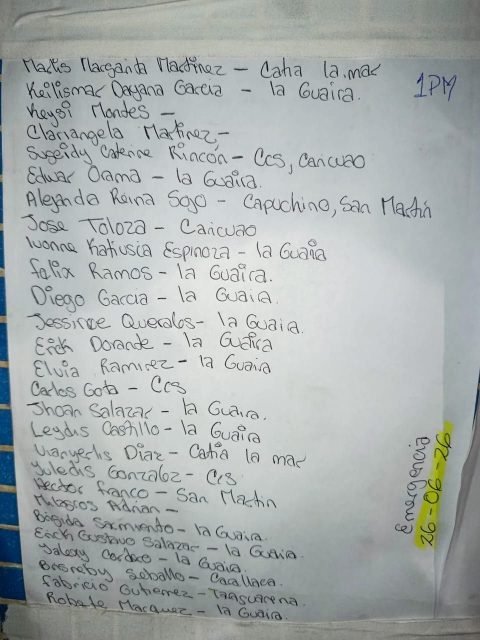 Maclis Margarida Martinez - Catia la mar
1PM
Keilismar Dayana Garcia - la Guaira.
Keysi Mondes -
Clariangela Martinez -
Sugeidy Caterine Rincón - Ccs, Caricuao
Edwar Orama - la Guaira.
Alejanda Reina Sojo - Capuchino, San Martin
Jose Toloza - Caricuao
Ivonne Katiusca Espinoza - la Guaira
Felix Ramos - la Guaira.
Diego Garcia - la Guaira.
Querales - la Guaira.
Erick Dorante - la Guaira
Elvia Ramirez - la Guaira
Carlos Gota - Ccs
Jhoan Salazar - la Guaira.
Leydis Castillo - la Guaira
Vianyerlis Diaz - Catia la mar
Yuledis Gonzalez - Ccs
Hector Franco - San Martin
Adrian -
Brigida Sarmiento - la Guaira.
Erick Gustavo Salazar - la Guaira.
Yalexy Cordero - la Guaira.
Seballo - Carallaca.
Fabricio Gutierrez - Tanaguarena.
Robert Marquez - la Guaira.
Emergencia
26-06-26